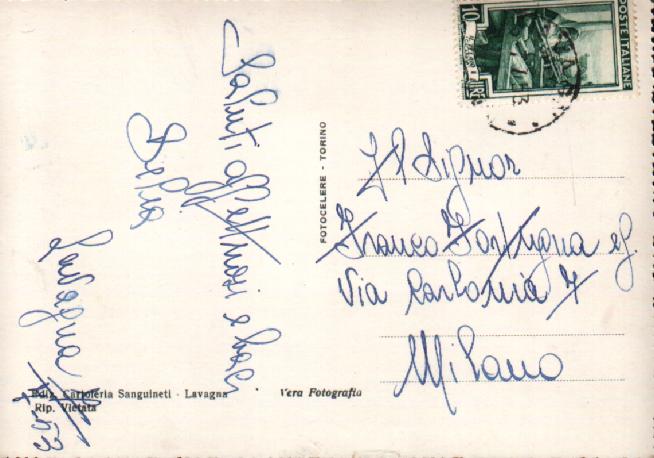 Saluti affettuosi e baci
Delia
Lavagna
Ediz. Cartoleria Sanguineti - Lavagna
Rip. Vietata
Vera Fotografia
FOTOCELERE - TORINO
POSTE ITALIANE
10
LIRE
Al Signor
Franco
Via
7
Milano